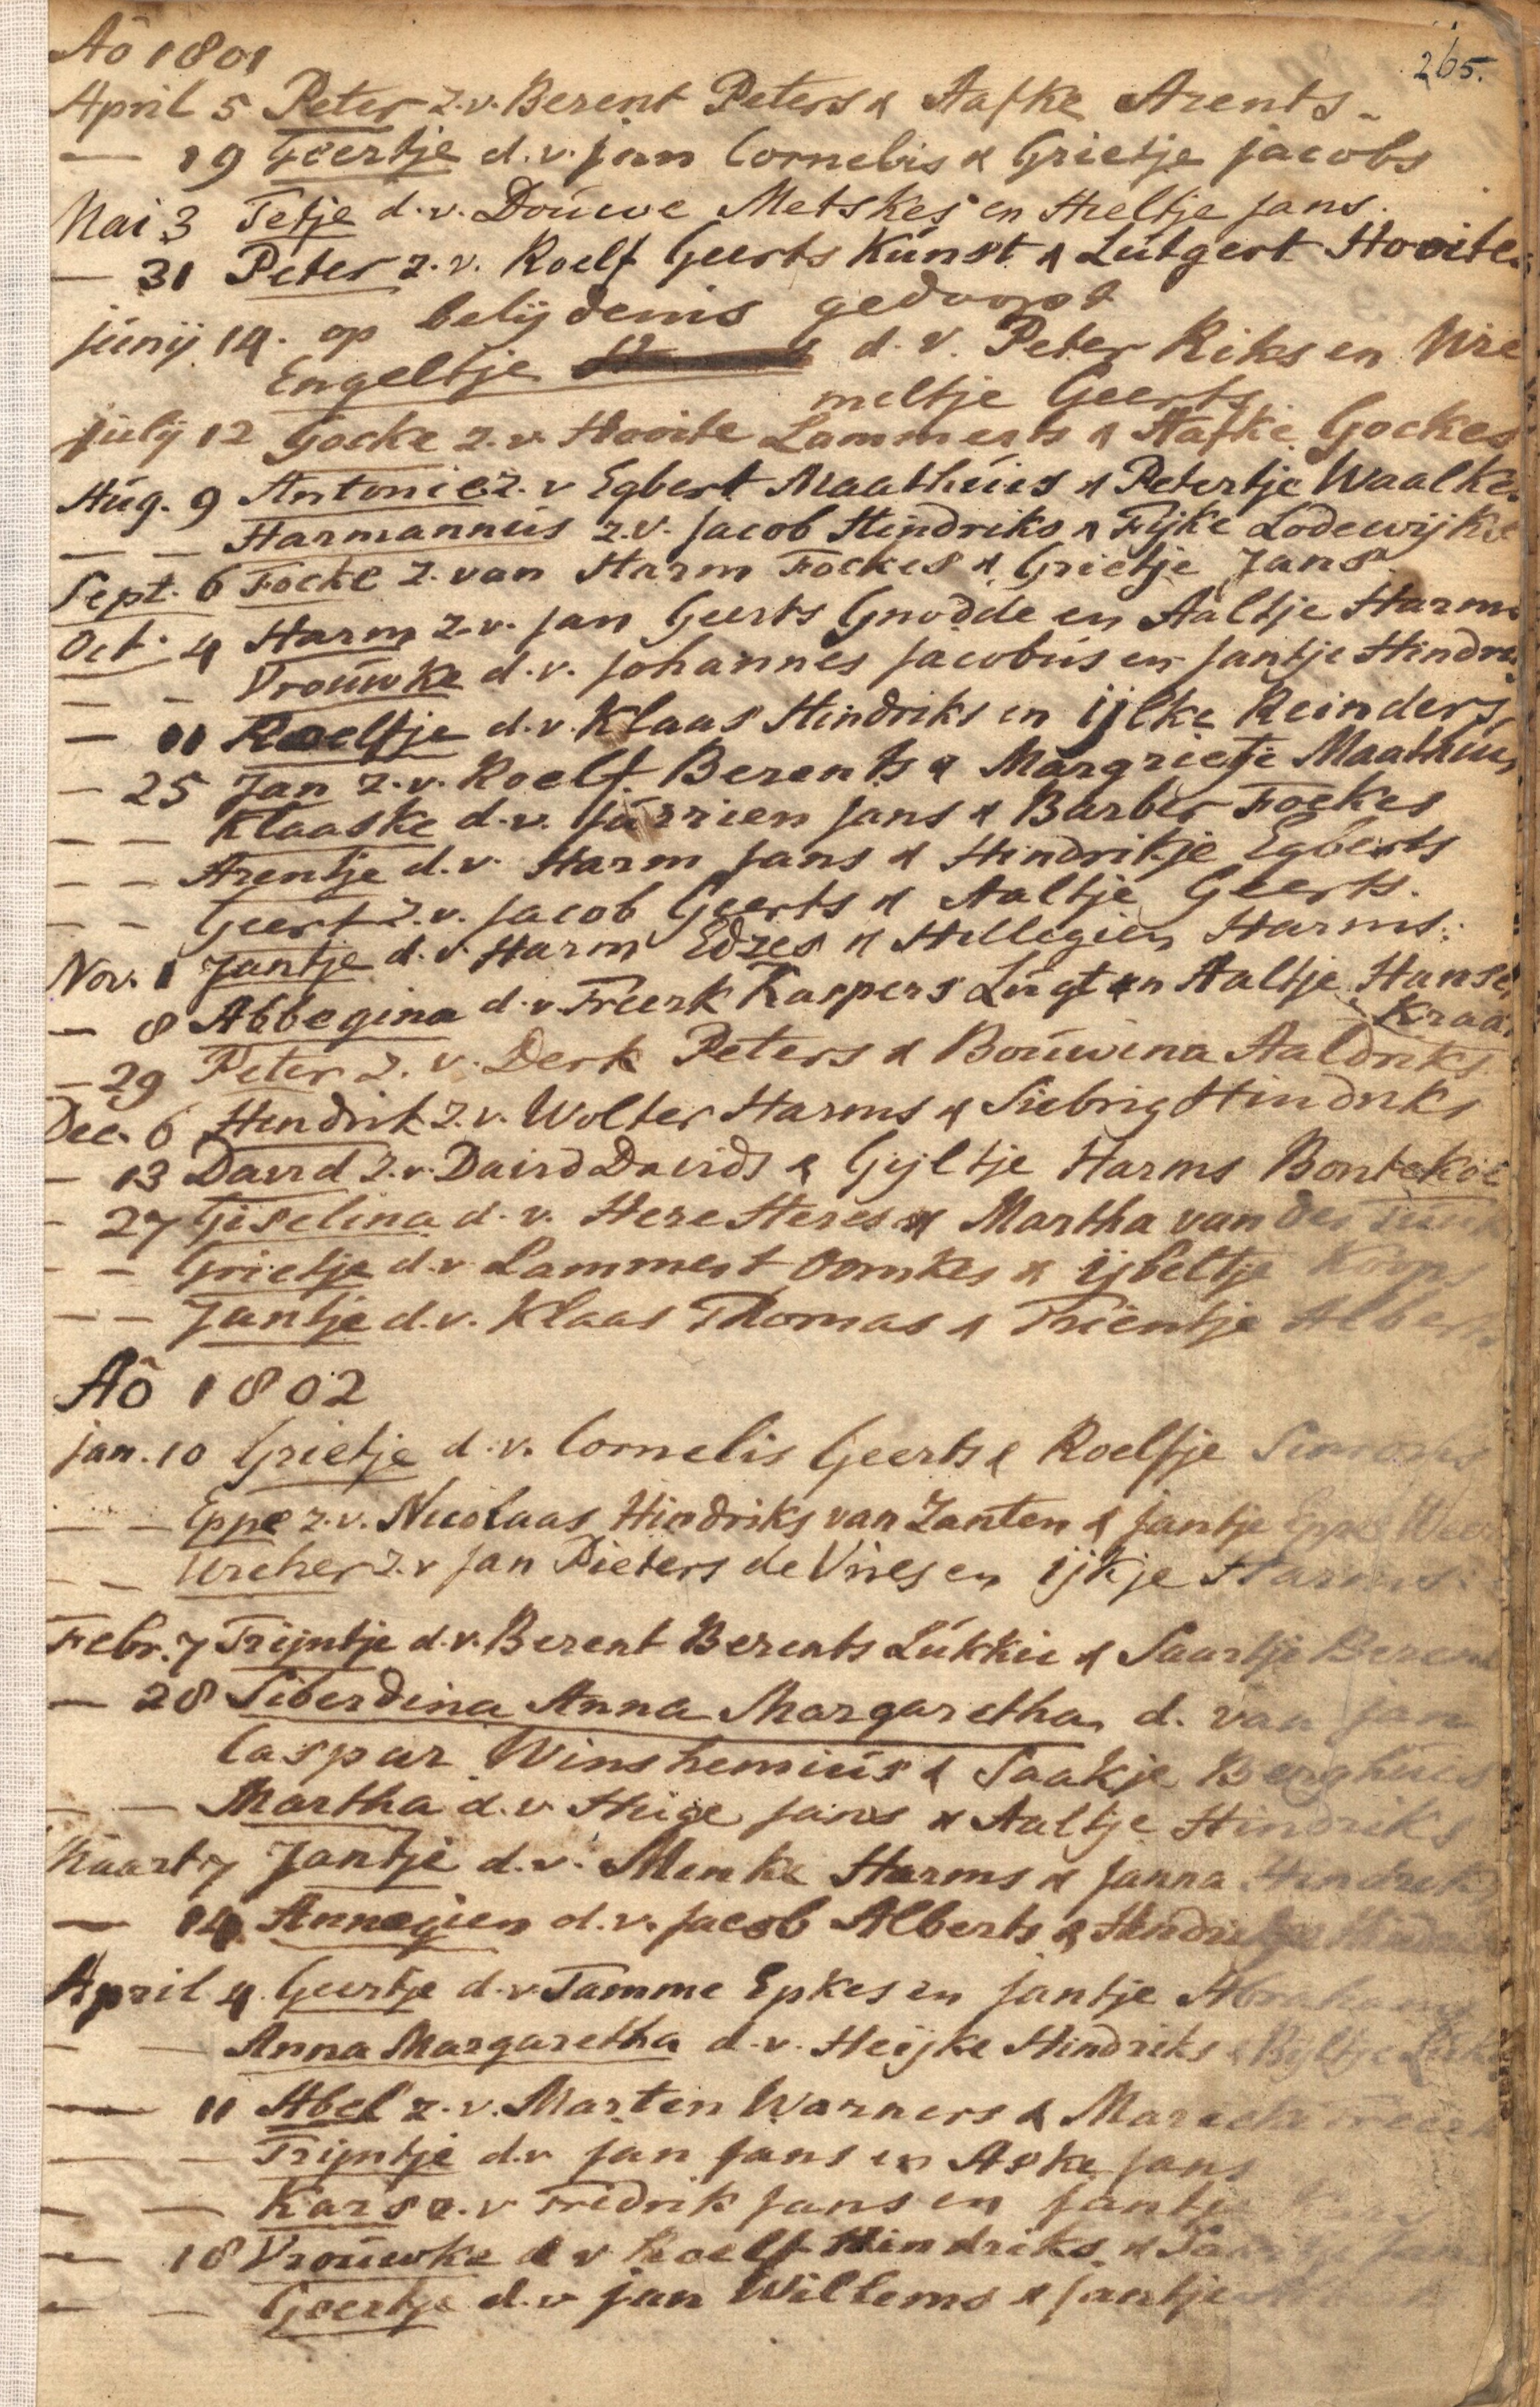 265.
Aô 1801
April 5 Peter z.v. Berent Peters & Aafke Arents
— 19 Geertje d.v. jan Cornelis & Grietje jacobs
Mai 3 Tetje d.v. Douwe Metskes en Heeltje jans.
— 31 Peter z.v. Roelf Geerts Kunst & Lutgert Hooite
junij 14. op belijdenis gedoopt
Engeltje d.v. Peter Riks en Wre
meltje Geerts
julij 12 Gocke z.v. Hooite Lammerts & Aafke Gockes
Aug. 9 Antonie z.v Egbert Maathuis & Petertje Waalke
— — Harmannus z.v. jacob Hindriks & Fijke Lodewijks
Sept. 6 Focke z. van Harm Fockes & Grietje Jans
Oct. 4 Harm z.v. jan Geerts Gnodde en Aaltje Harms
— — Vrouwke d.v. johannes jacobus en jantje Hindri
— 11 Roelfje d.v. Klaas Hindriks en ijlke Reinders
— 25 Jan z.v. Roelf Berents & Margrietje Maathui
— — Klaaske d.v. jurrien jans & Barber Fockes
— — Arentje d.v. Harm jans & Hindrikje Egberts
— — Geert z.v. jacob Geerts & Aaltje Geerts.
Nov. 1 Jantje d.v. Harm Edzes & Hillegien Harms.
— 8 Abbegina d.v Freerk Kaspers Lugt en Aaltje Hanse
Kraa
— 29 Peter z.v. Derk Peters & Bouwina Aaldriks
Dec. 6 Hindrik z.v. Wolter Harms & Siebrig Hindriks
— 13 David z.v. David Davids & Gijltje Harms Bontekoe
— 27 Giselina d.v. Here Heres & Martha van der Tuuk
— — Grietje d.v Lammert Oomkes & ijbeltje Koops
— — Jantje d.v. Klaas Thomas & Trientje Alberts
Aô 1802
jan. 10 Grietje d.v. Cornelis Geerts & Roelfje Simons
— — Eppe z.v. Nicolaas Hindriks van Zanten & jantje Eppes
— — z.v jan Pieters de Vries en ijkje Harms
Febr. 7 Trijntje d.v. Berent Berents Lukkie & Saartje Berent
— 28 Siberdina Anna Margaretha d. van jan
Caspar Winshemius & Saakje Berghuis
— — Martha d.v. Huige jans & Aaltje Hindriks
Maart 7 Jantje d.v. Menke Harms & janna Hindriks
— 14 Annegien d.v. jacob Alberts &
April 4. Geertje d.v Tamme Epkes en jantje Abrahams
— — Anna Margaretha d.v. Heijke Hindriks &
— 11 Abel z.v. Marten Warners &
— — Trijntje d.v jan jans en Aske jans
— — Kars z.v Fredrik jans en jantje
— 18 Vrouwke d v Roelf Hindriks &
— — Geertje d.v jan Willems & jantje